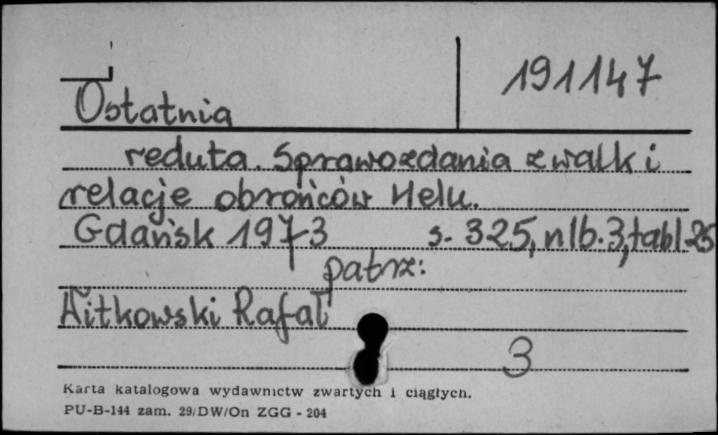 191147
Ostatnia
reduta. Sprawozdania z walk i
relacje obrońców Helu.
Gdańsk 1973 s. 325, nlb. 3, tabl 25
patrz:
Witkowski Rafał
3
Karta katalogowa wydawnictw zwartych i ciągłych.
PU-B-144 zam. 29/DW/On ZGG - 204